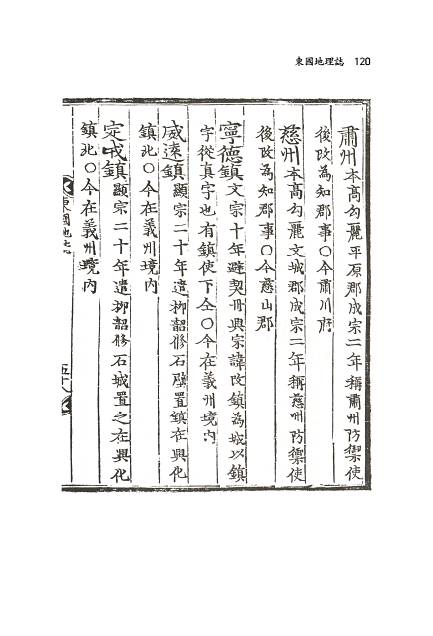 東國地理誌 120
肅州本高勾麗平原郡成宗二年稱肅州防禦使
後改為知郡事○今肅川府
慈州本高勾麗文城郡成宗二年稱慈州防禦使
後改為知郡事○今慈山郡
寧德鎮文宗十年避契丹興宗諱改鎮為城以鎮
字從真字也有鎮使下仝○今在義州境內
威遠鎮顯宗二十年遣柳韶修石壁置鎮在興化
鎮北○今在義州境內
定戎鎮顯宗二十年遣柳韶修石城置之在興化
鎮北○今在義州境內
五十八